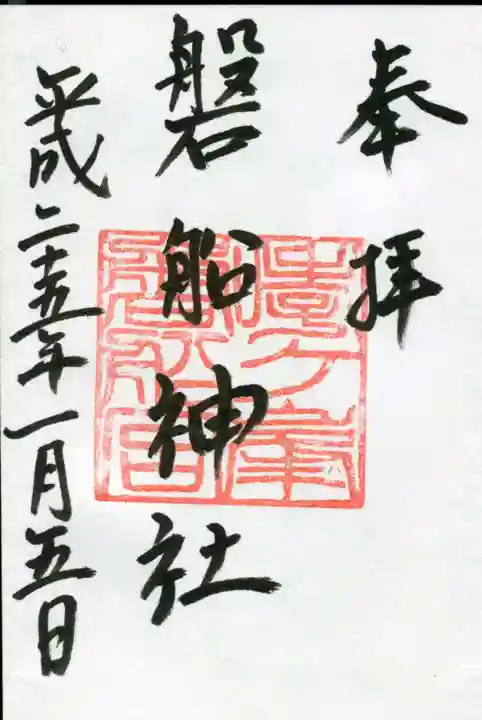 奉拝
磐船神社
平成二十五年一月五日